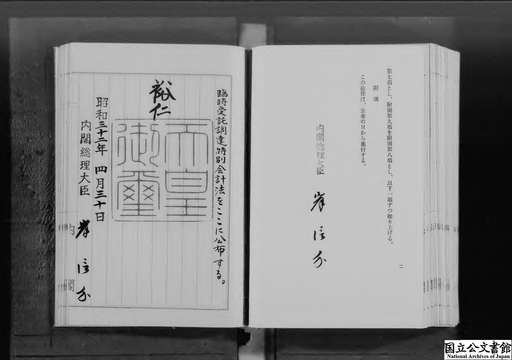 第七項とし、附則第九項を附則第八項とし、以下一項ずつ繰り上げる。
附 則
この法律は、公布の日から施行する。
内閣総理大臣 岸信介
二
臨時受託調達特別会計法をここに公布する。
裕仁
天皇御璽
昭和三十二年四月三十日
内閣総理大臣 岸信介
国立公文書館
National Archives of Japan